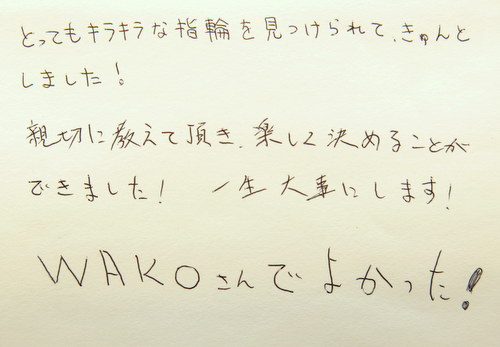 とってもキラキラな指輪を見つけられて、きゅんと
しました！
親切に教えて頂き、楽しく決めることが
できました！　一生大事にします！
WAKOさんでよかった！